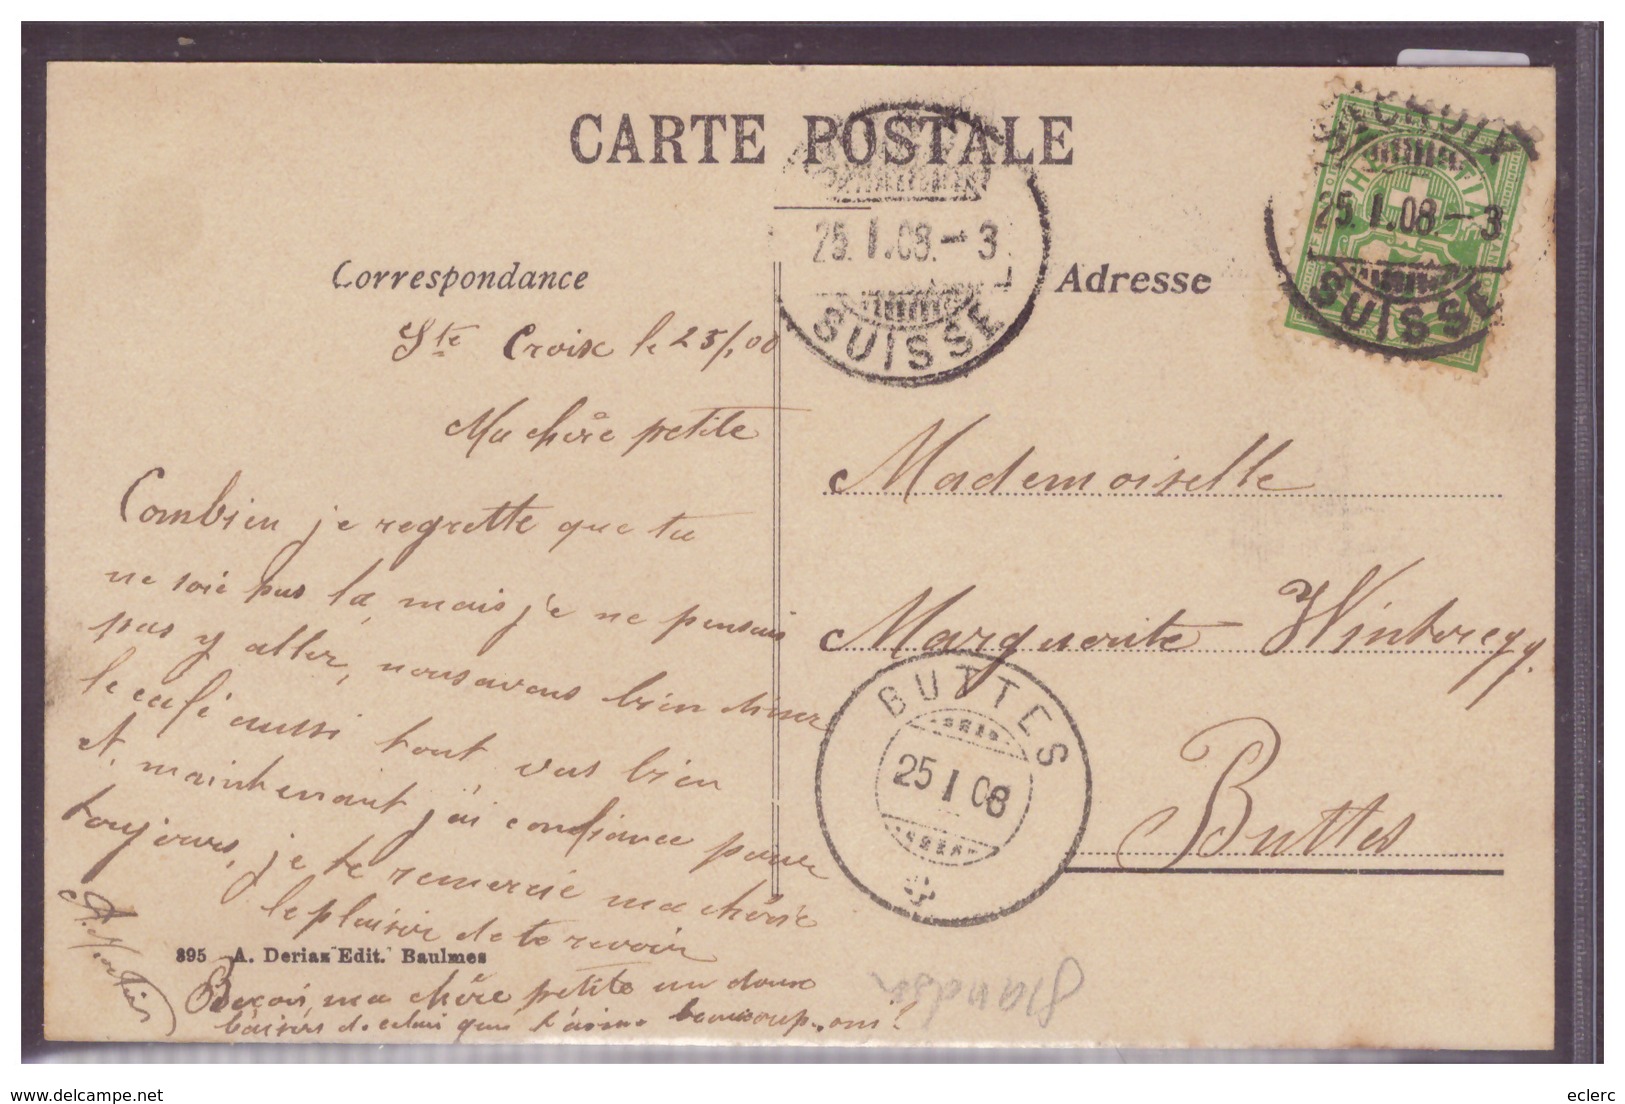 CARTE POSTALE
STE CROIX
25.I.08.-3
SUISSE
25.I.08.-3
SUISSE
Correspondance
Adresse
Ste Croix le 25/1 08
Ma chère petite
Combien je regrette que tu
ne soie pas là, mais je ne pensais
pas y aller, nous avons bien dîner
le café aussi tout vas bien
et, maintenant j'ai confiance pour
toujours, je te remercie ma chérie
le plaisir de te revoir
Reçois, ma chère petite un doux
baisers de celui que t'aime beaucoup, oui!
Mademoiselle
Marguerite Wintregg.
Buttes
BUTTES
25 I 08
895 A. Deriaz Edit. Baulmes
Grandson
delcampe.net
eclerc